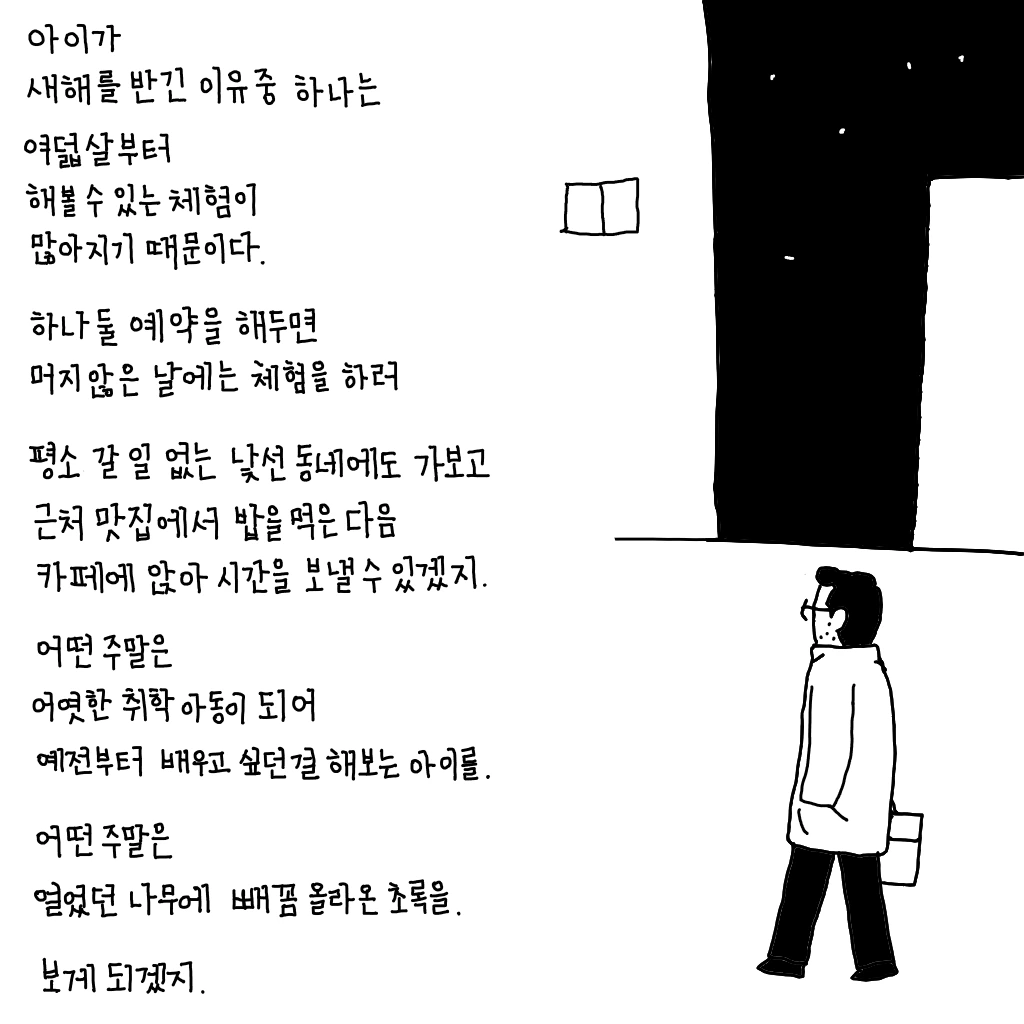 아이가
새해를 반긴 이유중 하나는
여덟살부터
해볼 수 있는 체험이
많아지기 때문이다.
하나 둘 예약을 해두면
머지않은 날에는 체험을 하러
평소 갈 일 없는 낯선 동네에도 가보고
근처 맛집에서 밥을 먹은 다음
카페에 앉아 시간을 보낼 수 있겠지.
어떤 주말은
어엿한 취학 아동이 되어
예전부터 배우고 싶던걸 해보는 아이를.
어떤 주말은
열었던 나무에 빼꼼 올라온 초록을.
보게 되겠지.